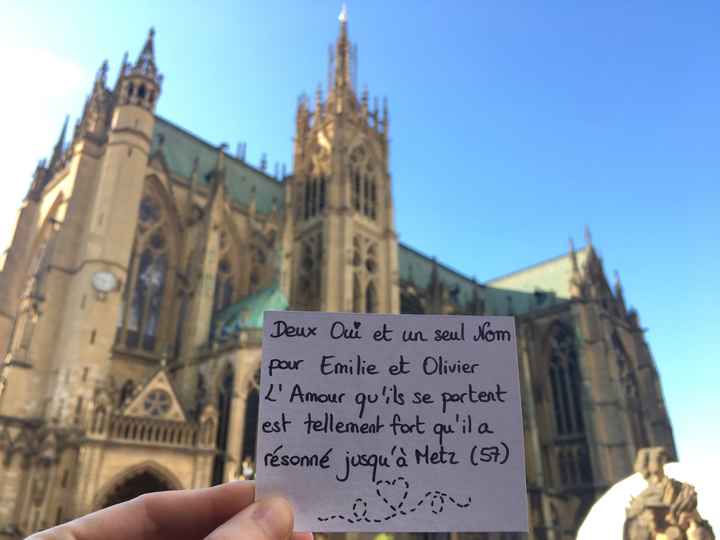 Deux Oui et un seul Nom
pour Emilie et Olivier
L'Amour qu'ils se portent
est tellement fort qu'il a
résonné jusqu'à Metz (57)